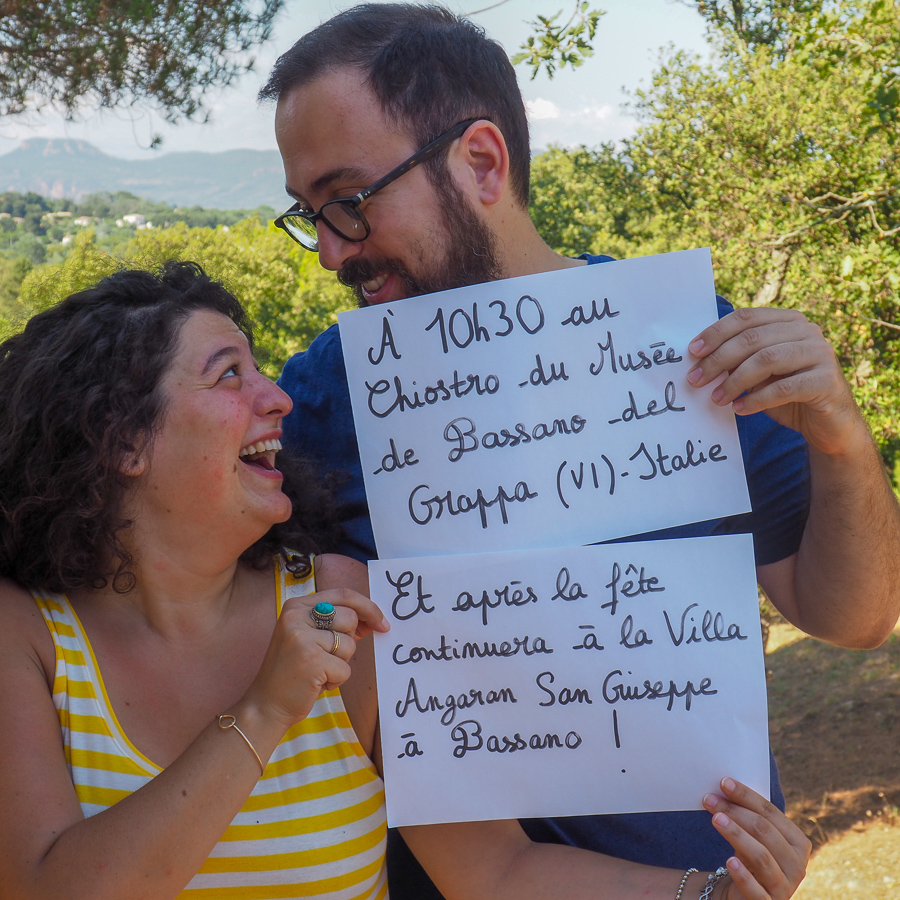 À 10h30 au
Chiostro du Musée
de Bassano del
Grappa (VI)-Italie
Et après la fête
continuera à la Villa
Angaran San Giuseppe
à Bassano !